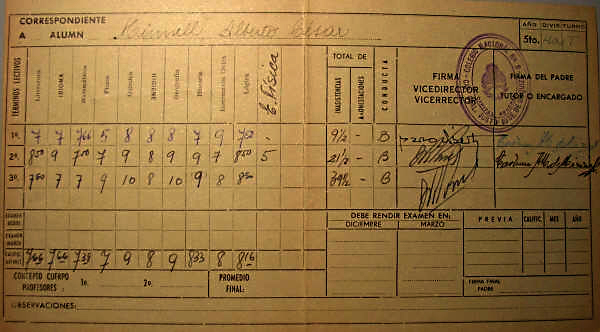 CORRESPONDIENTE
A ALUMN Alberto César
AÑO DIVIS. TURNO
5to.
TERMINOS LECTIVOS
Literatura IDIOMA Matemáticas Física Química Historia Lógica E. Física
TOTAL DE
INASISTENCIAS AMONESTACIONES CONDUCTA
FIRMA
VICEDIRECTOR
VICERRECTOR
FIRMA DEL PADRE
TUTOR O ENCARGADO
COLEGIO NACIONAL
1º. 7 7 7,66 5 8 8 8 7 9 7,50 - 9½ - B
2º. 8,50 9 7,00 7 9 8 9 9 7 8,50 5 21½ - B
3º. 7,50 7 7 9 10 8 10 9 8 8,50 34½ - B
EXAMEN DICBRE.
EXAMEN MARZO
CALIFIC. DEFINIT. 7,66 7,66 7,39 7 9 8 9 8,33 8 8,16
DEBE RENDIR EXAMEN EN:
DICIEMBRE MARZO
PREVIA CALIFIC. MES AÑO
CONCEPTO CUERPO
PROFESORES : 1o. 2o.
PROMEDIO
FINAL:
FIRMA FINAL
PADRE
OBSERVACIONES: